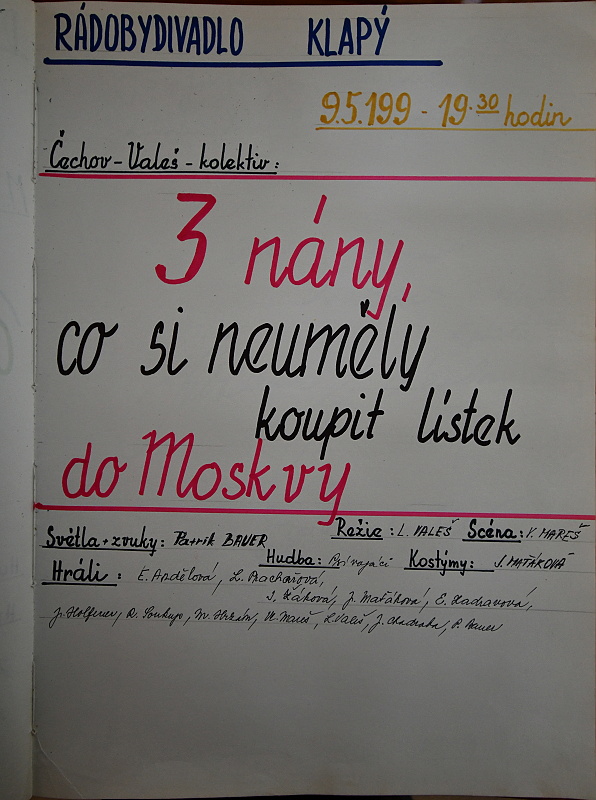 RÁDOBYDIVADLO KLAPÝ
9.5.199 - 19.30 hodin
Čechov - Valeš - kolektiv:
3 nány,
co si neuměly
koupit lístek
do Moskvy
Režie: L. VALEŠ Scéna: V. MAREŠ
Světla + zvuky: Patrik BAUER
Hudba: Kostýmy: J. MAŤÁKOVÁ
Hráli: E. Andělová, L. Pachorová,
J. Maťáková, E. Zadravová,
J. Holferer, R. Soukup, M. Hrzán, V. Mareš, L. Valeš, J. Chadraba, P. Bauer